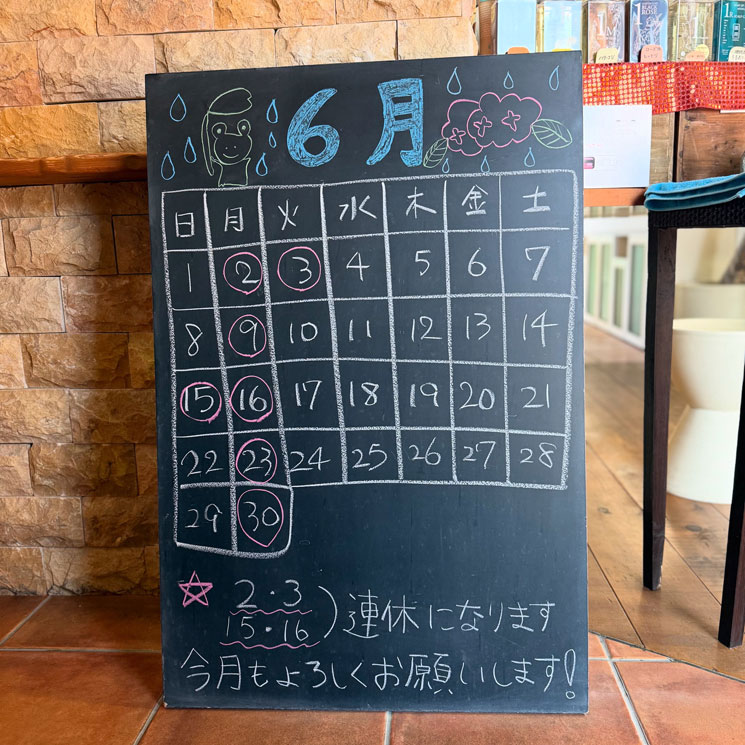 6月
日 月 火 水 木 金 土
1 2 3 4 5 6 7
8 9 10 11 12 13 14
15 16 17 18 19 20 21
22 23 24 25 26 27 28
29 30
☆ 2・3
15・16 ) 連休になります
今月もよろしくお願いします!